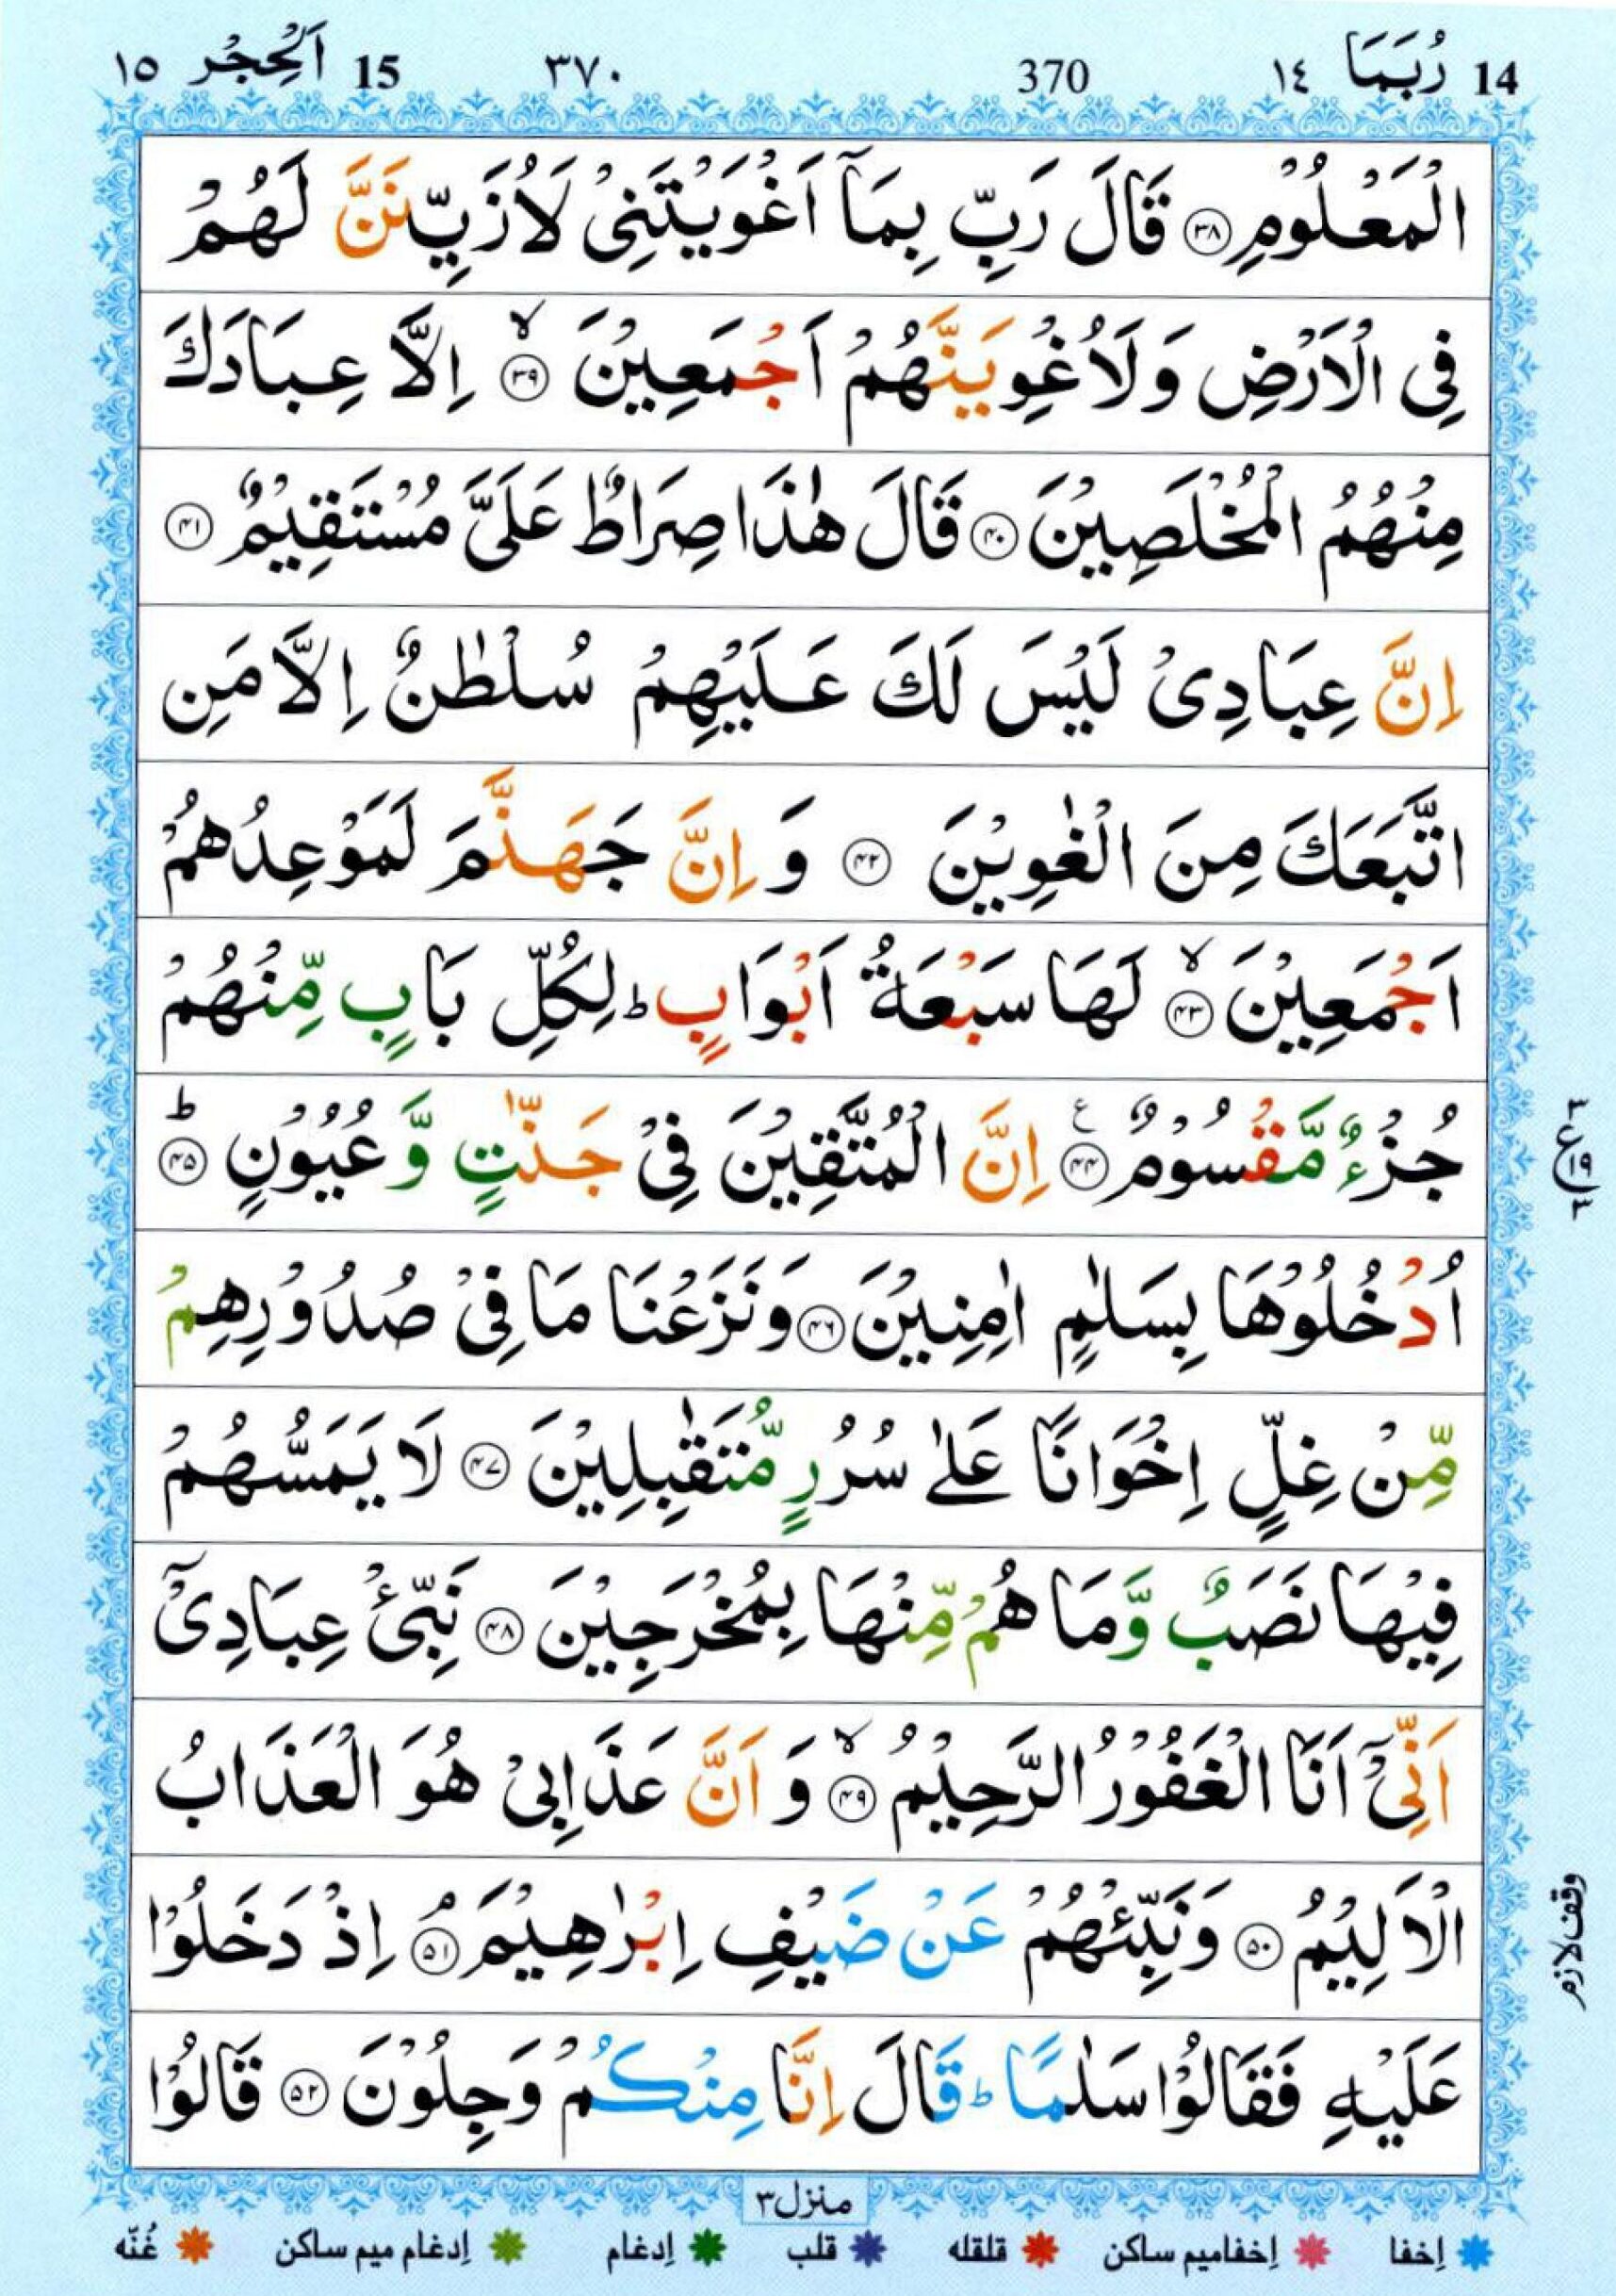 14 رُبَمَا ١٤ 370 ٣٧٠ 15 اَلْحِجْر ١٥
الْمَعْلُوْمِ ﴿۳۸﴾ قَالَ رَبِّ بِمَاۤ اَغْوَيْتَنِىْ لَاُزَيِّنَنَّ لَهُمْ
فِى الْاَرْضِ وَلَاُغْوِيَنَّهُمْ اَجْمَعِيْنَ ۙ﴿۳۹﴾ اِلَّا عِبَادَكَ
مِنْهُمُ الْمُخْلَصِيْنَ ﴿۴۰﴾ قَالَ هٰذَا صِرَاطٌ عَلَىَّ مُسْتَقِيْمٌ ﴿۴۱﴾
اِنَّ عِبَادِىْ لَيْسَ لَكَ عَلَيْهِمْ سُلْطٰنٌ اِلَّا مَنِ
اتَّبَعَكَ مِنَ الْغٰوِيْنَ ﴿۴۲﴾ وَ اِنَّ جَهَنَّمَ لَمَوْعِدُهُمْ
اَجْمَعِيْنَ ۙ﴿۴۳﴾ لَهَا سَبْعَةُ اَبْوَابٍ ؕ لِكُلِّ بَابٍ مِّنْهُمْ
جُزْءٌ مَّقْسُوْمٌ ﴿۴۴﴾ع اِنَّ الْمُتَّقِيْنَ فِىْ جَنّٰتٍ وَّ عُيُوْنٍ ؕ﴿۴۵﴾
٣ ع ١٩ ٣
اُدْخُلُوْهَا بِسَلٰمٍ اٰمِنِيْنَ ﴿۴۶﴾ وَنَزَعْنَا مَا فِىْ صُدُوْرِهِمْ
مِّنْ غِلٍّ اِخْوَانًا عَلٰى سُرُرٍ مُّتَقٰبِلِيْنَ ﴿۴۷﴾ لَا يَمَسُّهُمْ
فِيْهَا نَصَبٌ وَّمَا هُمْ مِّنْهَا بِمُخْرَجِيْنَ ﴿۴۸﴾ نَبِّئْ عِبَادِىْۤ
اَنِّىْۤ اَنَا الْغَفُوْرُ الرَّحِيْمُ ۙ﴿۴۹﴾ وَ اَنَّ عَذَابِىْ هُوَ الْعَذَابُ
الْاَلِيْمُ ﴿۵۰﴾ وَنَبِّئْهُمْ عَنْ ضَيْفِ اِبْرٰهِيْمَ ۘ﴿۵۱﴾ اِذْ دَخَلُوْا
وقف لازم
عَلَيْهِ فَقَالُوْا سَلٰمًا ؕ قَالَ اِنَّا مِنْكُمْ وَجِلُوْنَ ﴿۵۲﴾ قَالُوْا
منزل ٣
اِخفا اِخفامیم ساکن قلقله قلب اِدغام اِدغام میم ساکن غُنّه